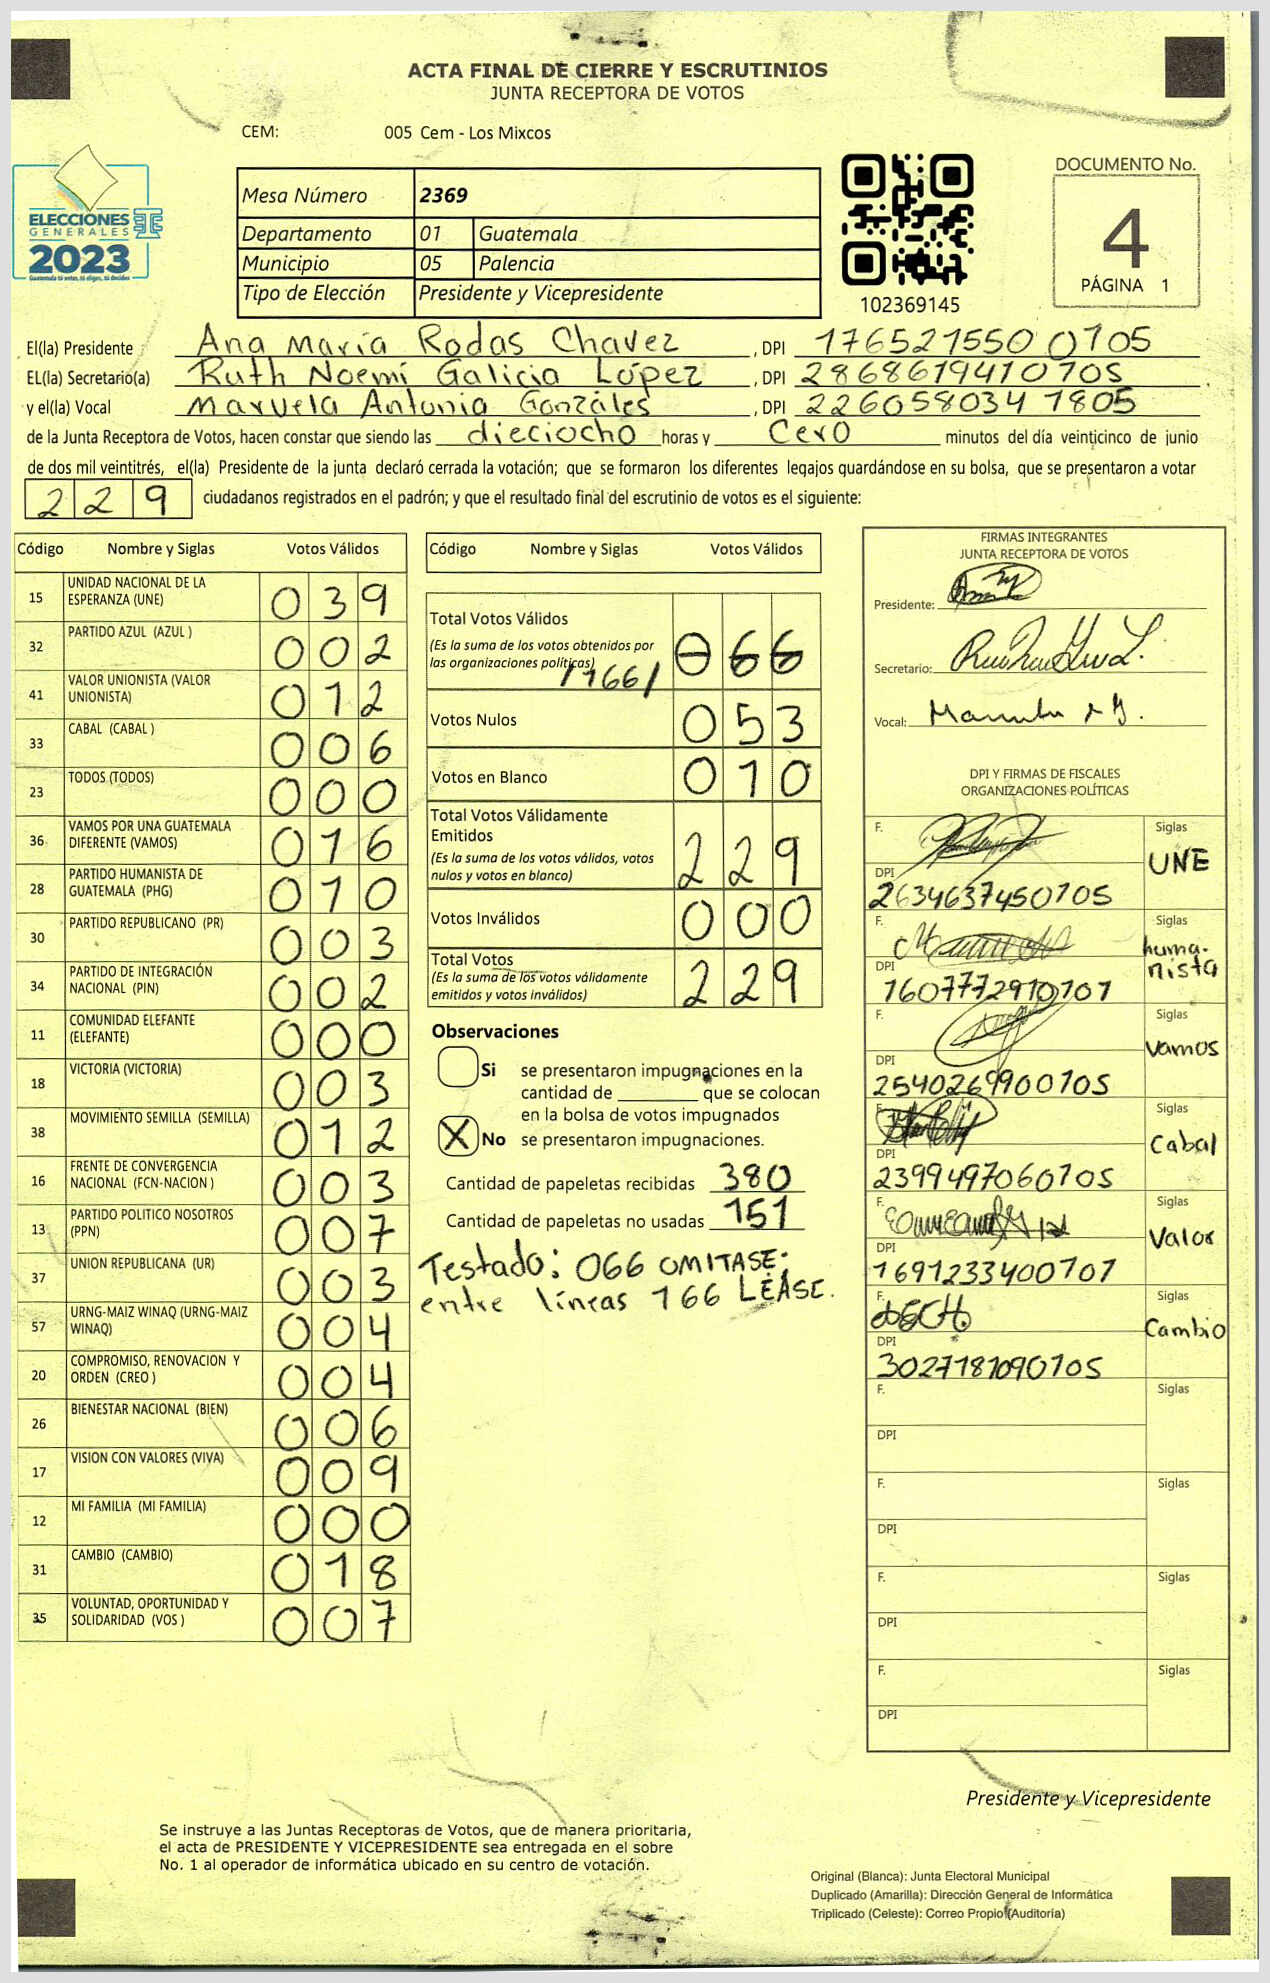 ACTA FINAL DE CIERRE Y ESCRUTINIOS
JUNTA RECEPTORA DE VOTOS
CEM: 005 Cem - Los Mixcos
ELECCIONES
GENERALES
2023
Guatemala tú votas, tú eliges, tú decides
Mesa Número 2369
Departamento 01 Guatemala
Municipio 05 Palencia
Tipo de Elección Presidente y Vicepresidente
102369145
DOCUMENTO No.
4
PÁGINA 1
El(la) Presidente Ana María Rodas Chavez, DPI 176521550 0105
EL(la) Secretario(a) Ruth Noemí Galicia López, DPI 2868619410705
y el(la) Vocal Maruela Antonia Gonzáles, DPI 226058034 1805
de la Junta Receptora de Votos, hacen constar que siendo las dieciocho horas y Cero minutos del día veinticinco de junio
de dos mil veintitrés, el(la) Presidente de la junta declaró cerrada la votación; que se formaron los diferentes legajos guardándose en su bolsa, que se presentaron a votar
229 ciudadanos registrados en el padrón; y que el resultado final del escrutinio de votos es el siguiente:
Código Nombre y Siglas Votos Válidos
15 UNIDAD NACIONAL DE LA ESPERANZA (UNE) 039
32 PARTIDO AZUL (AZUL ) 002
41 VALOR UNIONISTA (VALOR UNIONISTA) 012
33 CABAL (CABAL ) 006
23 TODOS (TODOS) 000
36 VAMOS POR UNA GUATEMALA DIFERENTE (VAMOS) 016
28 PARTIDO HUMANISTA DE GUATEMALA (PHG) 010
30 PARTIDO REPUBLICANO (PR) 003
34 PARTIDO DE INTEGRACIÓN NACIONAL (PIN) 002
11 COMUNIDAD ELEFANTE (ELEFANTE) 000
18 VICTORIA (VICTORIA) 003
38 MOVIMIENTO SEMILLA (SEMILLA) 012
16 FRENTE DE CONVERGENCIA NACIONAL (FCN-NACION ) 003
13 PARTIDO POLITICO NOSOTROS (PPN) 007
37 UNION REPUBLICANA (UR) 003
57 URNG-MAIZ WINAQ (URNG-MAIZ WINAQ) 004
20 COMPROMISO, RENOVACION Y ORDEN (CREO ) 004
26 BIENESTAR NACIONAL (BIEN) 006
17 VISION CON VALORES (VIVA) 009
12 MI FAMILIA (MI FAMILIA) 000
31 CAMBIO (CAMBIO) 018
35 VOLUNTAD, OPORTUNIDAD Y SOLIDARIDAD (VOS ) 007
Código Nombre y Siglas Votos Válidos
Total Votos Válidos 066
(Es la suma de los votos obtenidos por
las organizaciones políticas)
/166/
Votos Nulos 053
Votos en Blanco 010
Total Votos Válidamente
Emitidos 229
(Es la suma de los votos válidos, votos
nulos y votos en blanco)
Votos Inválidos 000
Total Votos 229
(Es la suma de los votos válidamente
emitidos y votos inválidos)
Observaciones
Si se presentaron impugnaciones en la
cantidad de ________ que se colocan
en la bolsa de votos impugnados
X No se presentaron impugnaciones.
Cantidad de papeletas recibidas 380
Cantidad de papeletas no usadas 151
Testado: 066 OMITASE.
entre líneas 166 LEASE.
FIRMAS INTEGRANTES
JUNTA RECEPTORA DE VOTOS
Presidente:
Secretario:
Vocal:
DPI Y FIRMAS DE FISCALES
ORGANIZACIONES POLÍTICAS
F. Siglas
UNE
DPI
2634637450105
F. Siglas
huma-
nista
DPI
1607772910101
F. Siglas
Vamos
DPI
2540269900105
F. Siglas
Cabal
DPI
2399497060105
F. Siglas
Valor
DPI
1691233400101
F. Siglas
Cambio
DPI
3027181090105
F. Siglas
DPI
F. Siglas
DPI
F. Siglas
DPI
F. Siglas
DPI
Presidente y Vicepresidente
Se instruye a las Juntas Receptoras de Votos, que de manera prioritaria,
el acta de PRESIDENTE Y VICEPRESIDENTE sea entregada en el sobre
No. 1 al operador de informática ubicado en su centro de votación.
Original (Blanca): Junta Electoral Municipal
Duplicado (Amarilla): Dirección General de Informática
Triplicado (Celeste): Correo Propio (Auditoría)